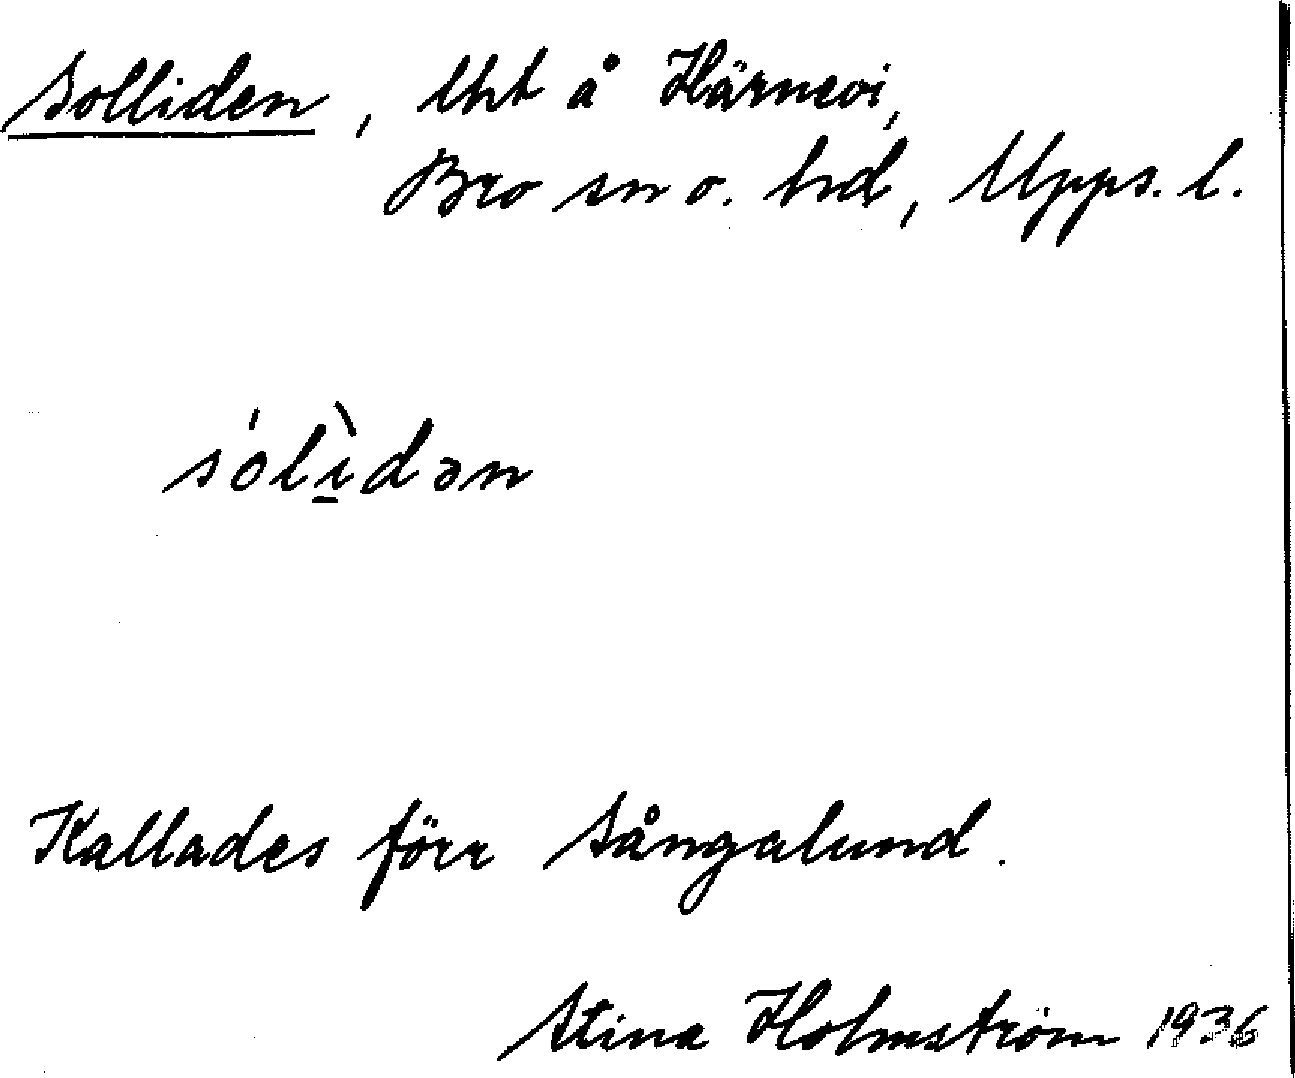 Solliden, lht å Härnevi,
Bro sn o. hd, Upps. l.
sólı̱̀dən
Kallades förr Sångalund.
Stina Holmström 1936